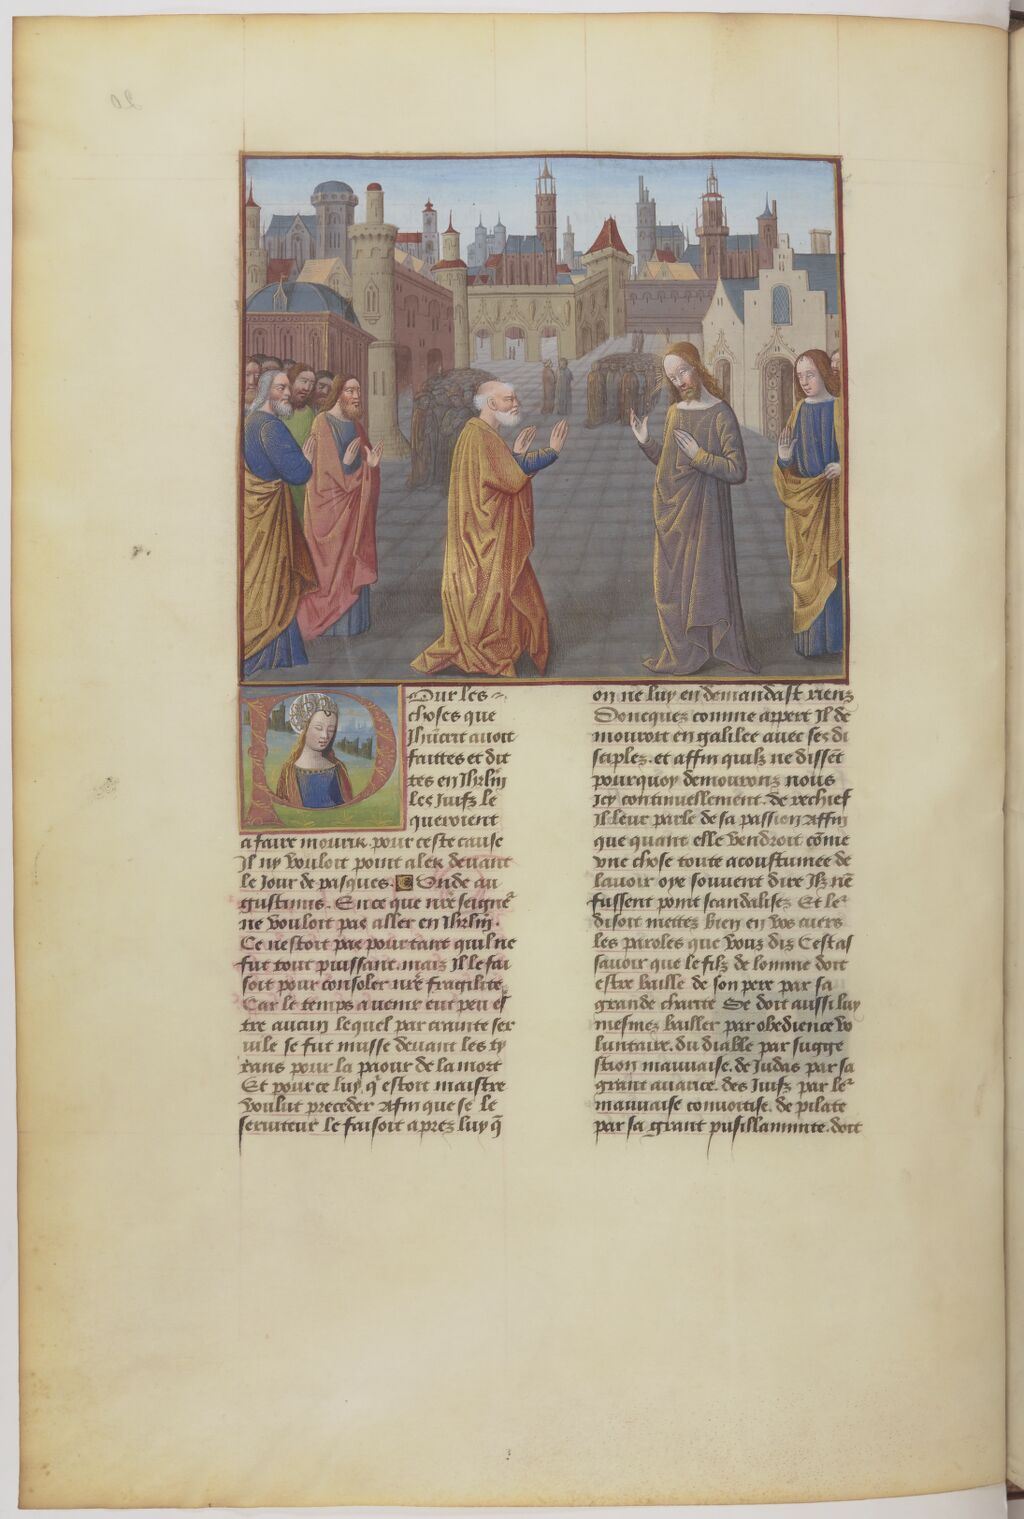 Pour les
choses que
Jhūcrit auoit
faittes et dit
tes en Jhrlm̄
les Juifz le
queroient
a faire mourir. pour ceste cause
Il ny vouloit point aler deuant
le Jour de pasques. Unde au
gustinus. En ce que nr̄e seignr̄
ne vouloit pas aller en Jhrlm̄.
Ce nestoit pas pourtant quil ne
fut tout puissant. mais Il le fai
soit pour consoler nr̄e fragilite.
Car le temps auenir eut peu es
tre aucun lequel par crainte ser
uile se fut musse deuant les ty
rans pour la paour de la mort
Et pour ce luy q̄ estoit maistre
voulut preceder Affin que se le
seruiteur le faisoit aprez luy q̄
on ne luy en demandast riens
Doncques comme appert Il de
mouroit en galilee auec ses di
sciples. et affin quilz ne dissēt
pourquoy demourons nous
Icy continuellement. de rechief
Il leur parle de sa passion Affin
que quant elle vendroit cōme
vne chose toute acoustumee de
lauoir oye souuent dire Ilz nē
fussent point scandalisez Et le2
disoit mettez bien en vos cuers
les paroles que vous dis Cest as
sauoir que le filz de lomme doit
estre baille de son pere par sa
grande charite Se doit aussi luy
mesmes bailler par obedience vo
luntaire. du diable par sugge
stion mauuaise. de Judas par sa
grant auarice. des Juifz par le2
mauuaise conuoitise. de pilate
par sa grant pusillaminite. doit